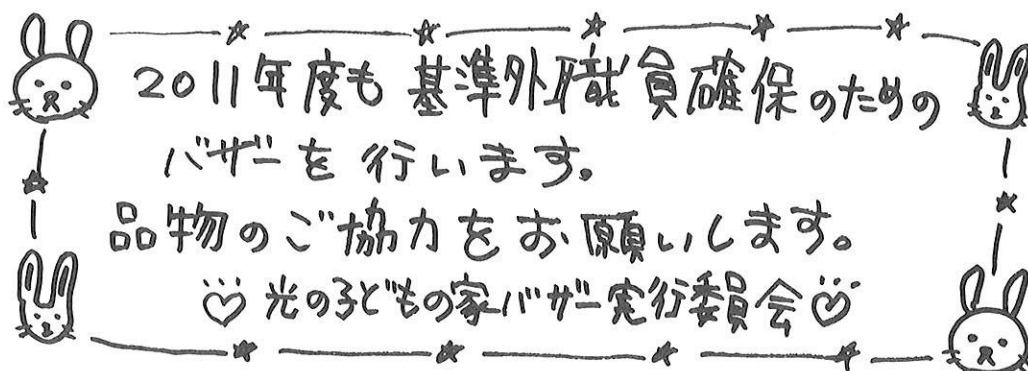 2011年度も基準外職員確保のための
バザーを行います。
品物のご協力をお願いします。
♡光の子どもの家バザー実行委員会♡